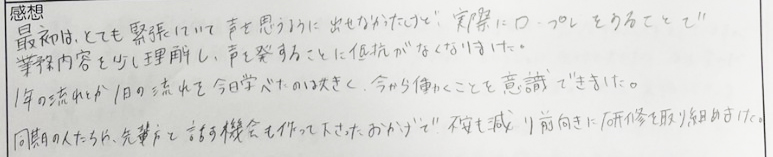 感想
最初は、とても緊張していて声を思うように出せなかったけど、実際にロープレをすることで
業務内容を少し理解し、声を発することに抵抗がなくなりました。
1年の流れとか1日の流れを今日学べたのは大きく、今から働くことを意識できました。
同期の人たちや、先輩方と話す機会も作って下さったおかげで不安も減り前向きに研修を取り組めました。